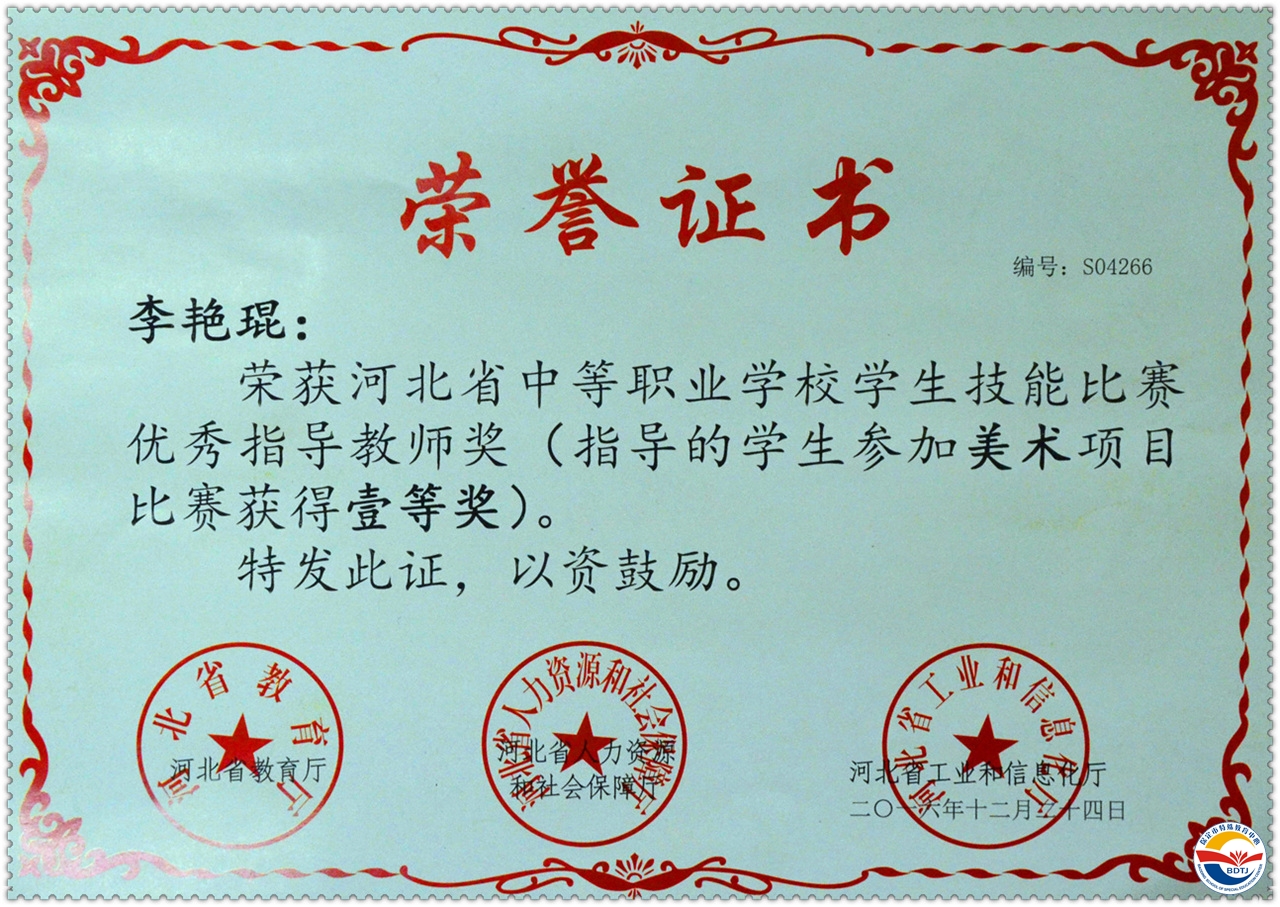 荣誉证书
编号：S04266
李艳琨：
荣获河北省中等职业学校学生技能比赛
优秀指导教师奖（指导的学生参加美术项目
比赛获得壹等奖）。
特发此证，以资鼓励。
河北省教育厅
河北省教育厅
河北省人力资源和社会保障厅
河北省人力资源
和社会保障厅
河北省工业和信息化厅
河北省工业和信息化厅
二〇一六年十二月二十四日
保定市特殊教育中心
BDTJ